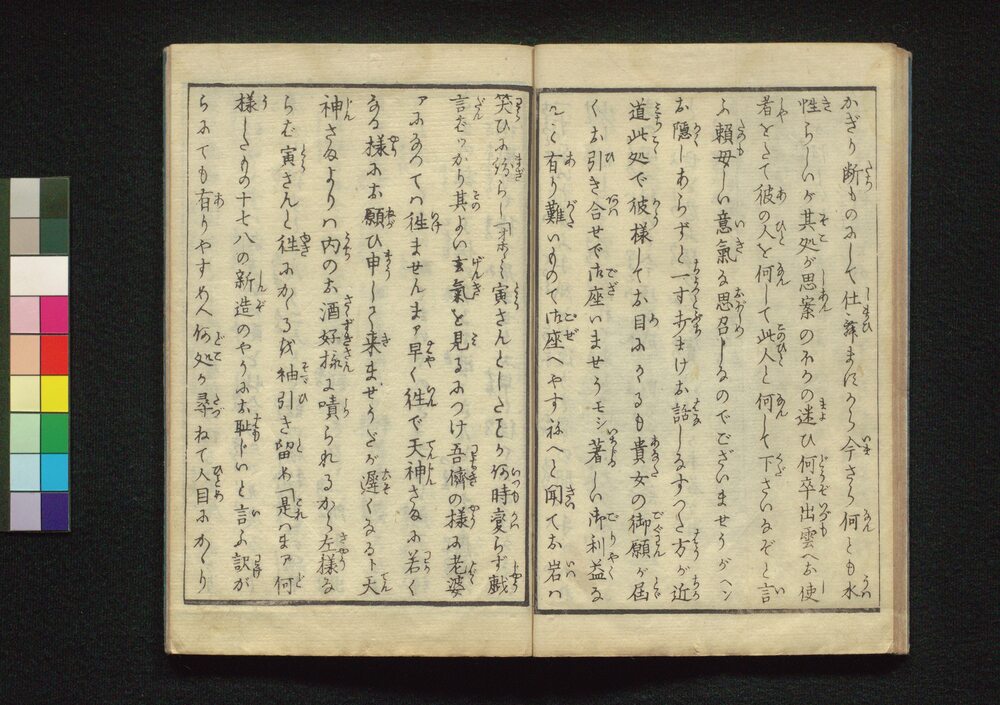 かぎり断ものにして仕舞ますから今さら何とも水
性らしいが其処が思案のほかの迷ひ何卒出雲へお使
者をたて彼の人を何して此人と何して下さいなぞと言
ふ頼母しい意気な思召しなのでございませうがヘン
お隠しあらずと一寸赤まけお話しなすつた方が近
道此処で彼様してお目にかゝるも貴女の御願が届
くお引き合せで御座いませうモシ著しい御利益な
んと有り難いもので御座へやすねへと聞てお岩は
笑ひに紛らし「ホヽヽ寅さんとしたことが何時も変らず戯
言ばつかり其よい玄気を見るにつけ吾儕の様に老婆
アになつては往ませんマア早く往て天神さまに若く
なる様にお願ひ申して来ませうどが遅くなると天
神さまよりは内のお酒好様に嘖られるから左様な
らば寅さんと往にかゝるを袖引き留め「是はまア何
様したもの十七八の新造のやうにお恥しいと言ふ訳が
らにても有りやすめへ何処か尋ねて人目にかゝり